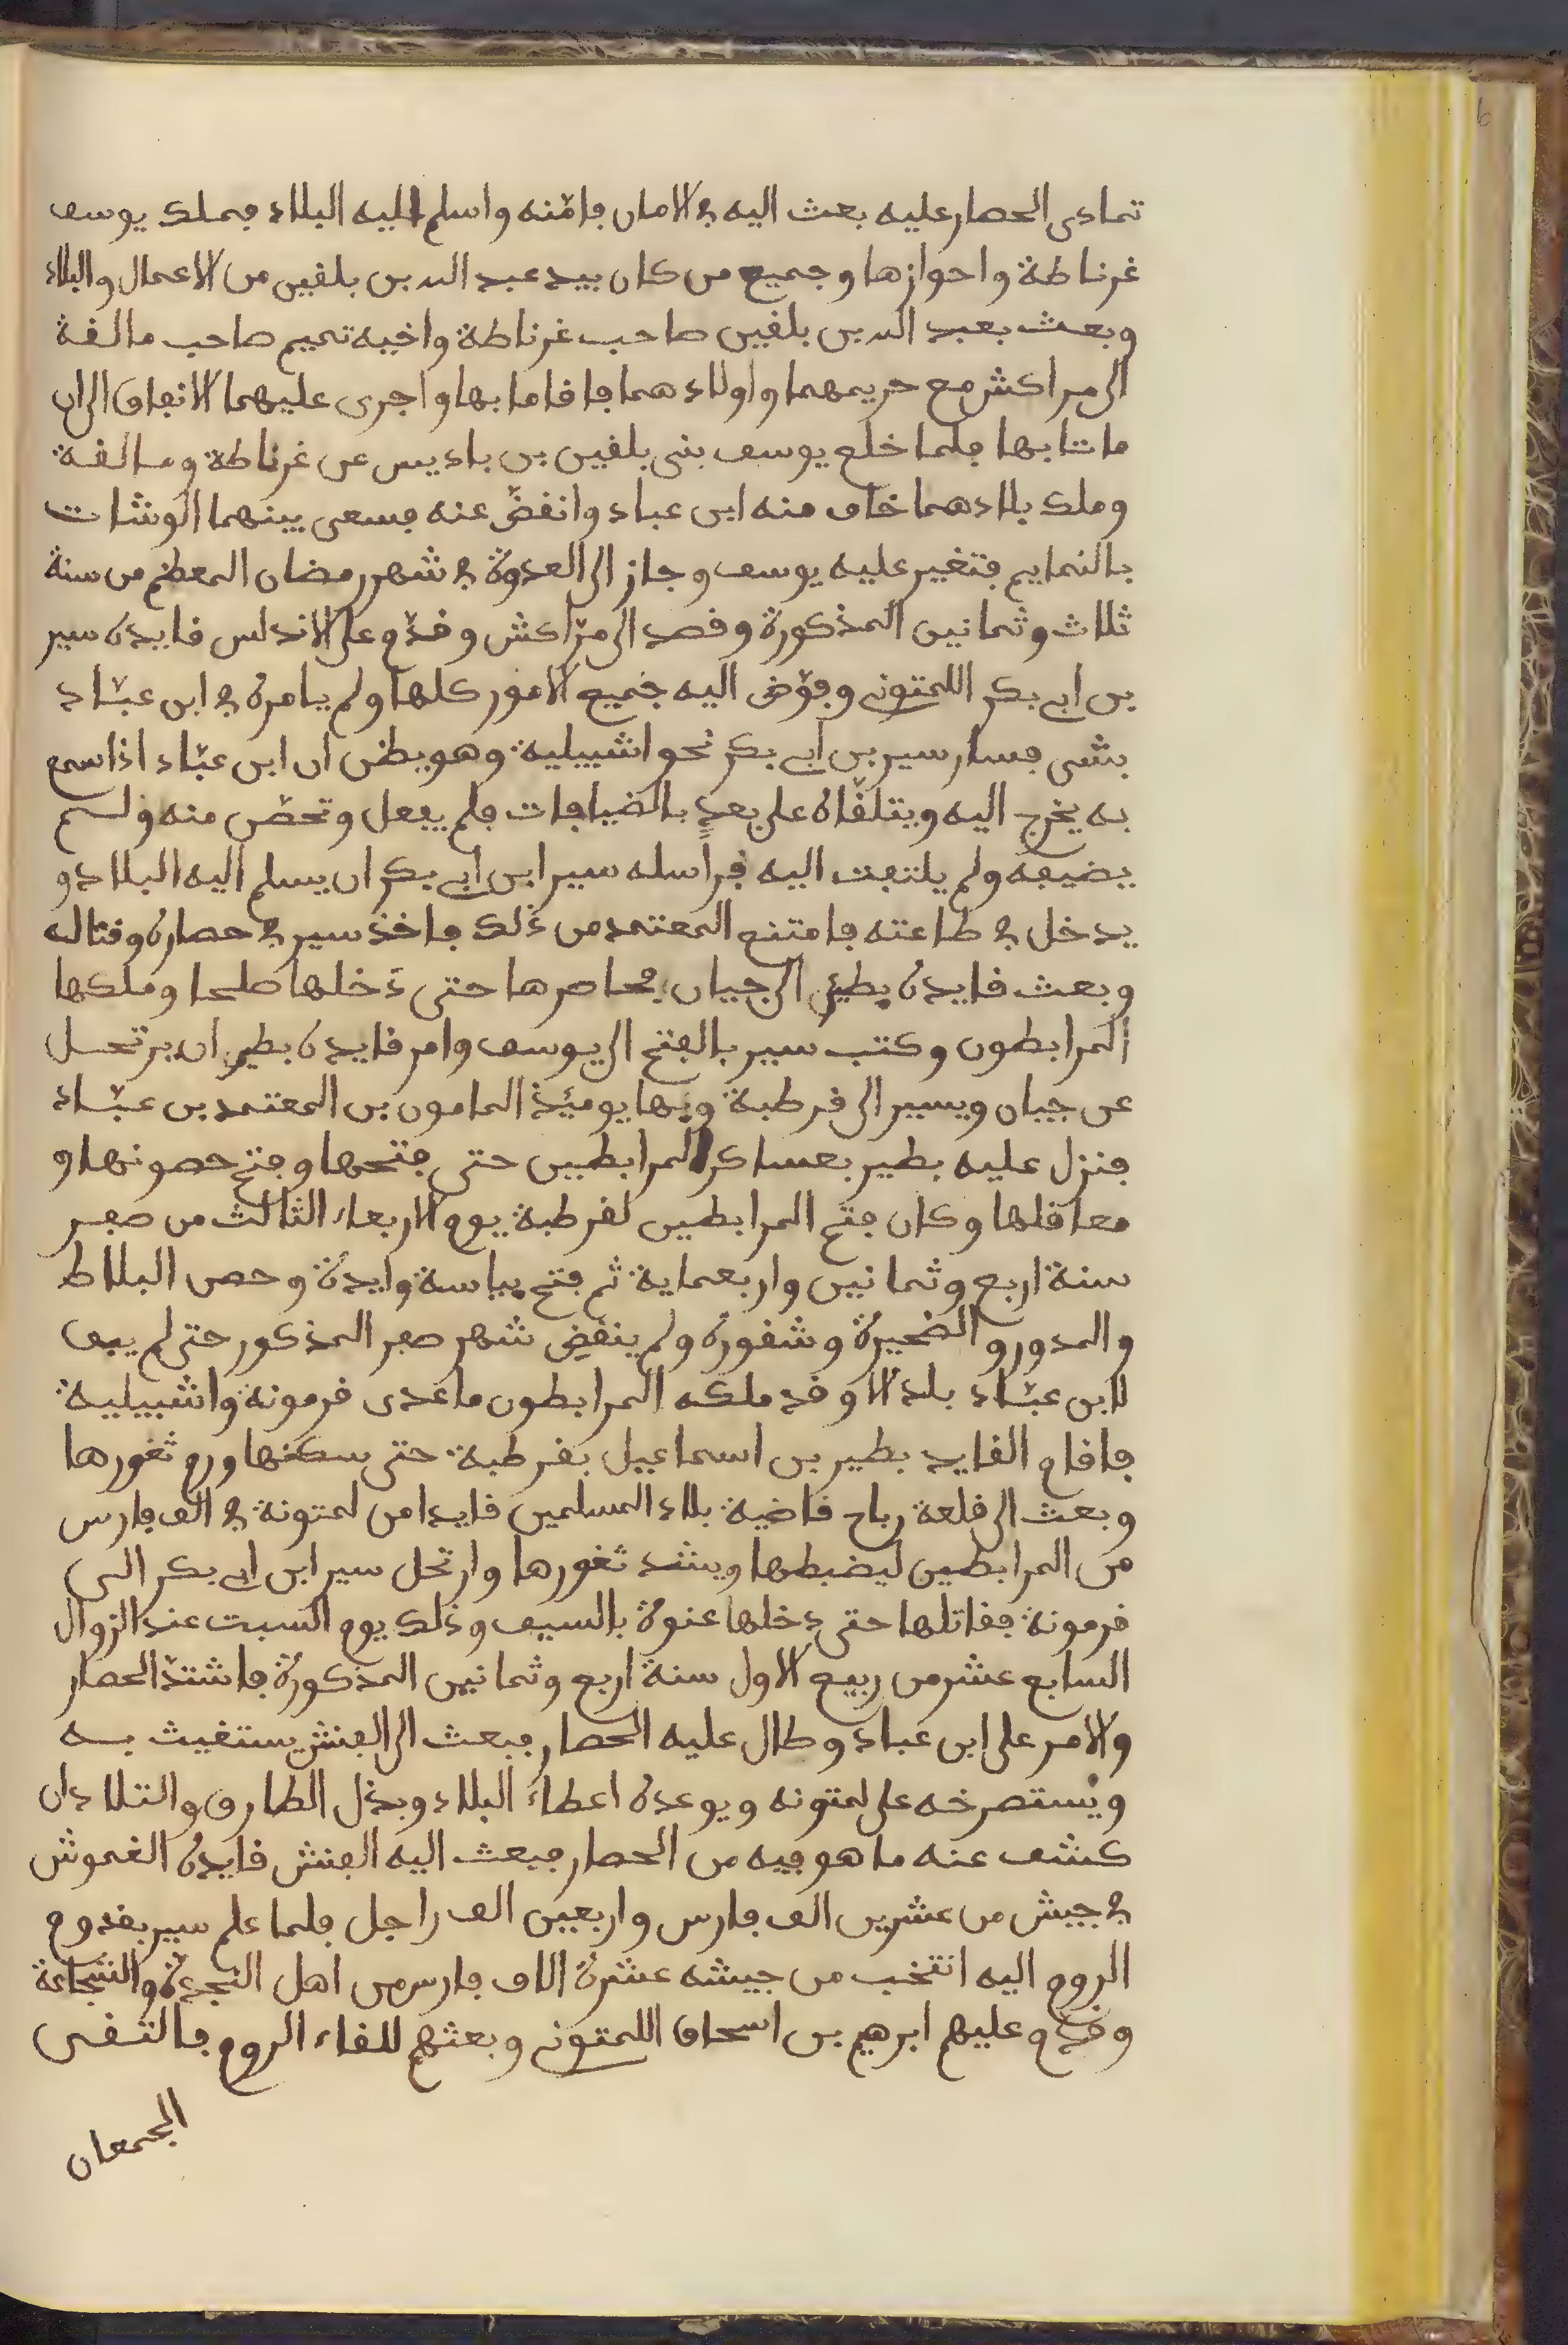 تمادى الحصار عليه بعث اليه في الامان فامّنه واسلم اليه البلاد فملك يوسف
غرناطة واحوازها وجميع من كان بيد عبد الله بن بلقين من الاعمال والبلاد
وبعث بعبد الله بن بلقين صاحب غرناطة واخيه تميم صاحب مالقة
الى مراكش مع حريمهما واولادهما فاقاما بها واجرى عليهما الانفاق الى ان
ماتا بها فلما خلع يوسف بنى بلقين بن باديس عن غرناطة ومالقة
وملك بلادهما خاف منه ابن عباد وانقضّ عنه فسعى بينهما الوشات
بالنمايم فتغير عليه يوسف وجاز الى العدوة في شهر رمضان المعظم من سنة
ثلاث وثمانين المذكورة وقصد الى مرّاكش وقدّم على الاندلس قايده سير
بن ابي بكر اللمتوني وفوّض اليه جميع الامور كلها ولم يامره في ابن عبّاد
بشى فسار سير بن ابي بكر نحو اشبيلية وهو يظن ان ابن عبّاد اذا سمع
به يخرج اليه ويتلقّاه على بعدٍ بالضيافات فلم يفعل وتحصّن منه ولم
يضيفه ولم يلتفت اليه فراسله سير ابن ابي بكر ان يسلم اليه البلاد و
يدخل في طاعته فامتنع المعتمد من ذلك فاخذ سير في حصاره وقتاله
وبعث قايده بطير الى جيان فحاصرها حتى دخلها صلحا وملكها
المرابطون وكتب سير بالفتح الى يوسف وامر قايده بطير ان يرتحل
عن جيان ويسير الى قرطبة وبها يوميذ المامون بن المعتمد بن عبّاد
فنزل عليه بطير بعساكر المرابطين حتى فتحها وفتح حصونها و
معاقلها وكان فتح المرابطين لقرطبة يوم الاربعاء الثالث من صفر
سنة اربع وثمانين واربعماية ثم فتح بياسة وايدة وحصن البلاط
والمدور والضخيرة وشقورة ولم ينقض شهر صفر المذكور حتى لم يبق
لابن عبّاد بلد الا وقد ملكه المرابطون ما عدى قرمونة واشبيلية
فاقام القايد بطير بن اسماعيل بقرطبة حتى سكنها ورم ثغورها
وبعث الى قلعة رباح قاضية بلاد المسلمين قايدا من لمتونة في الف فارس
من المرابطين ليضبطها ويشد ثغورها وارتحل سير ابن ابي بكر الى
قرمونة فقاتلها حتى دخلها عنوة بالسيف وذلك يوم السبت عند الزوال
السابع عشر من ربيع الاول سنة اربع وثمانين المذكورة فاشتدّ الحصار
والامر على ابن عباد وطال عليه الحصار فبعث الى الفنش يستغيث به
ويستصرخه على لمتونه ويوعده اعطاء البلاد وبذل الطارق والتلاد ان
كشف عنه ما هو فيه من الحصار فبعث اليه الفنش قايده الغموش
في جيش من عشرين الف فارس واربعين الف راجل فلما علم سير بقدوم
الروم اليه انتخب من جيشه عشرة الاف فارس من اهل النجدة والشجاعة
وقدم عليهم ابرهيم بن اسحاق اللمتوني وبعثهم للقاء الروم فالتقى
الجمعان